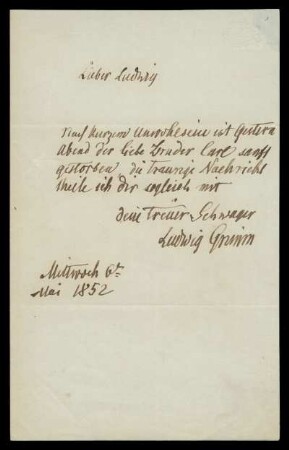 Lieber Ludwig
Nach kurzem Unwohlsein ist Gestern
Abend der liebe Bruder Carl sanft
gestorben, die traurige Nachricht
theile ich dir sogleich mit
dein treuer Schwager
Ludwig Grimm
Mittwoch 6t
Mai 1852